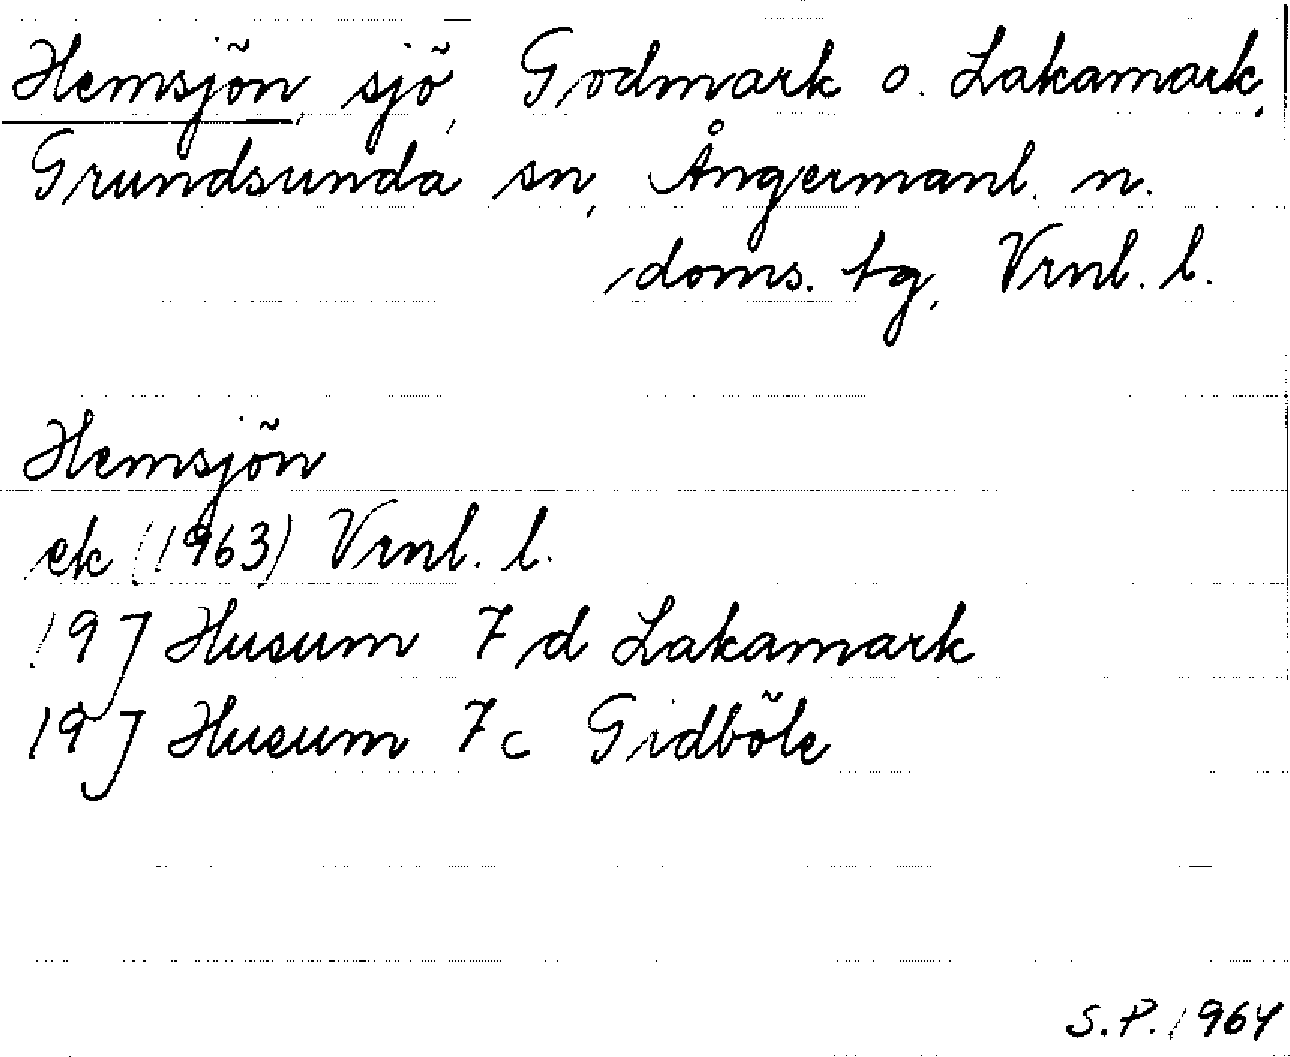 Hemsjön, sjö, Godmark o. Lakamark,
Grundsunda sn, Ångermanl. n.
doms. tg, Vrnl. l.
Hemsjön
ek (1963) Vrnl. l.
19J Husum 7d Lakamark
19J Husum 7c Gidböle
S.P. 1964